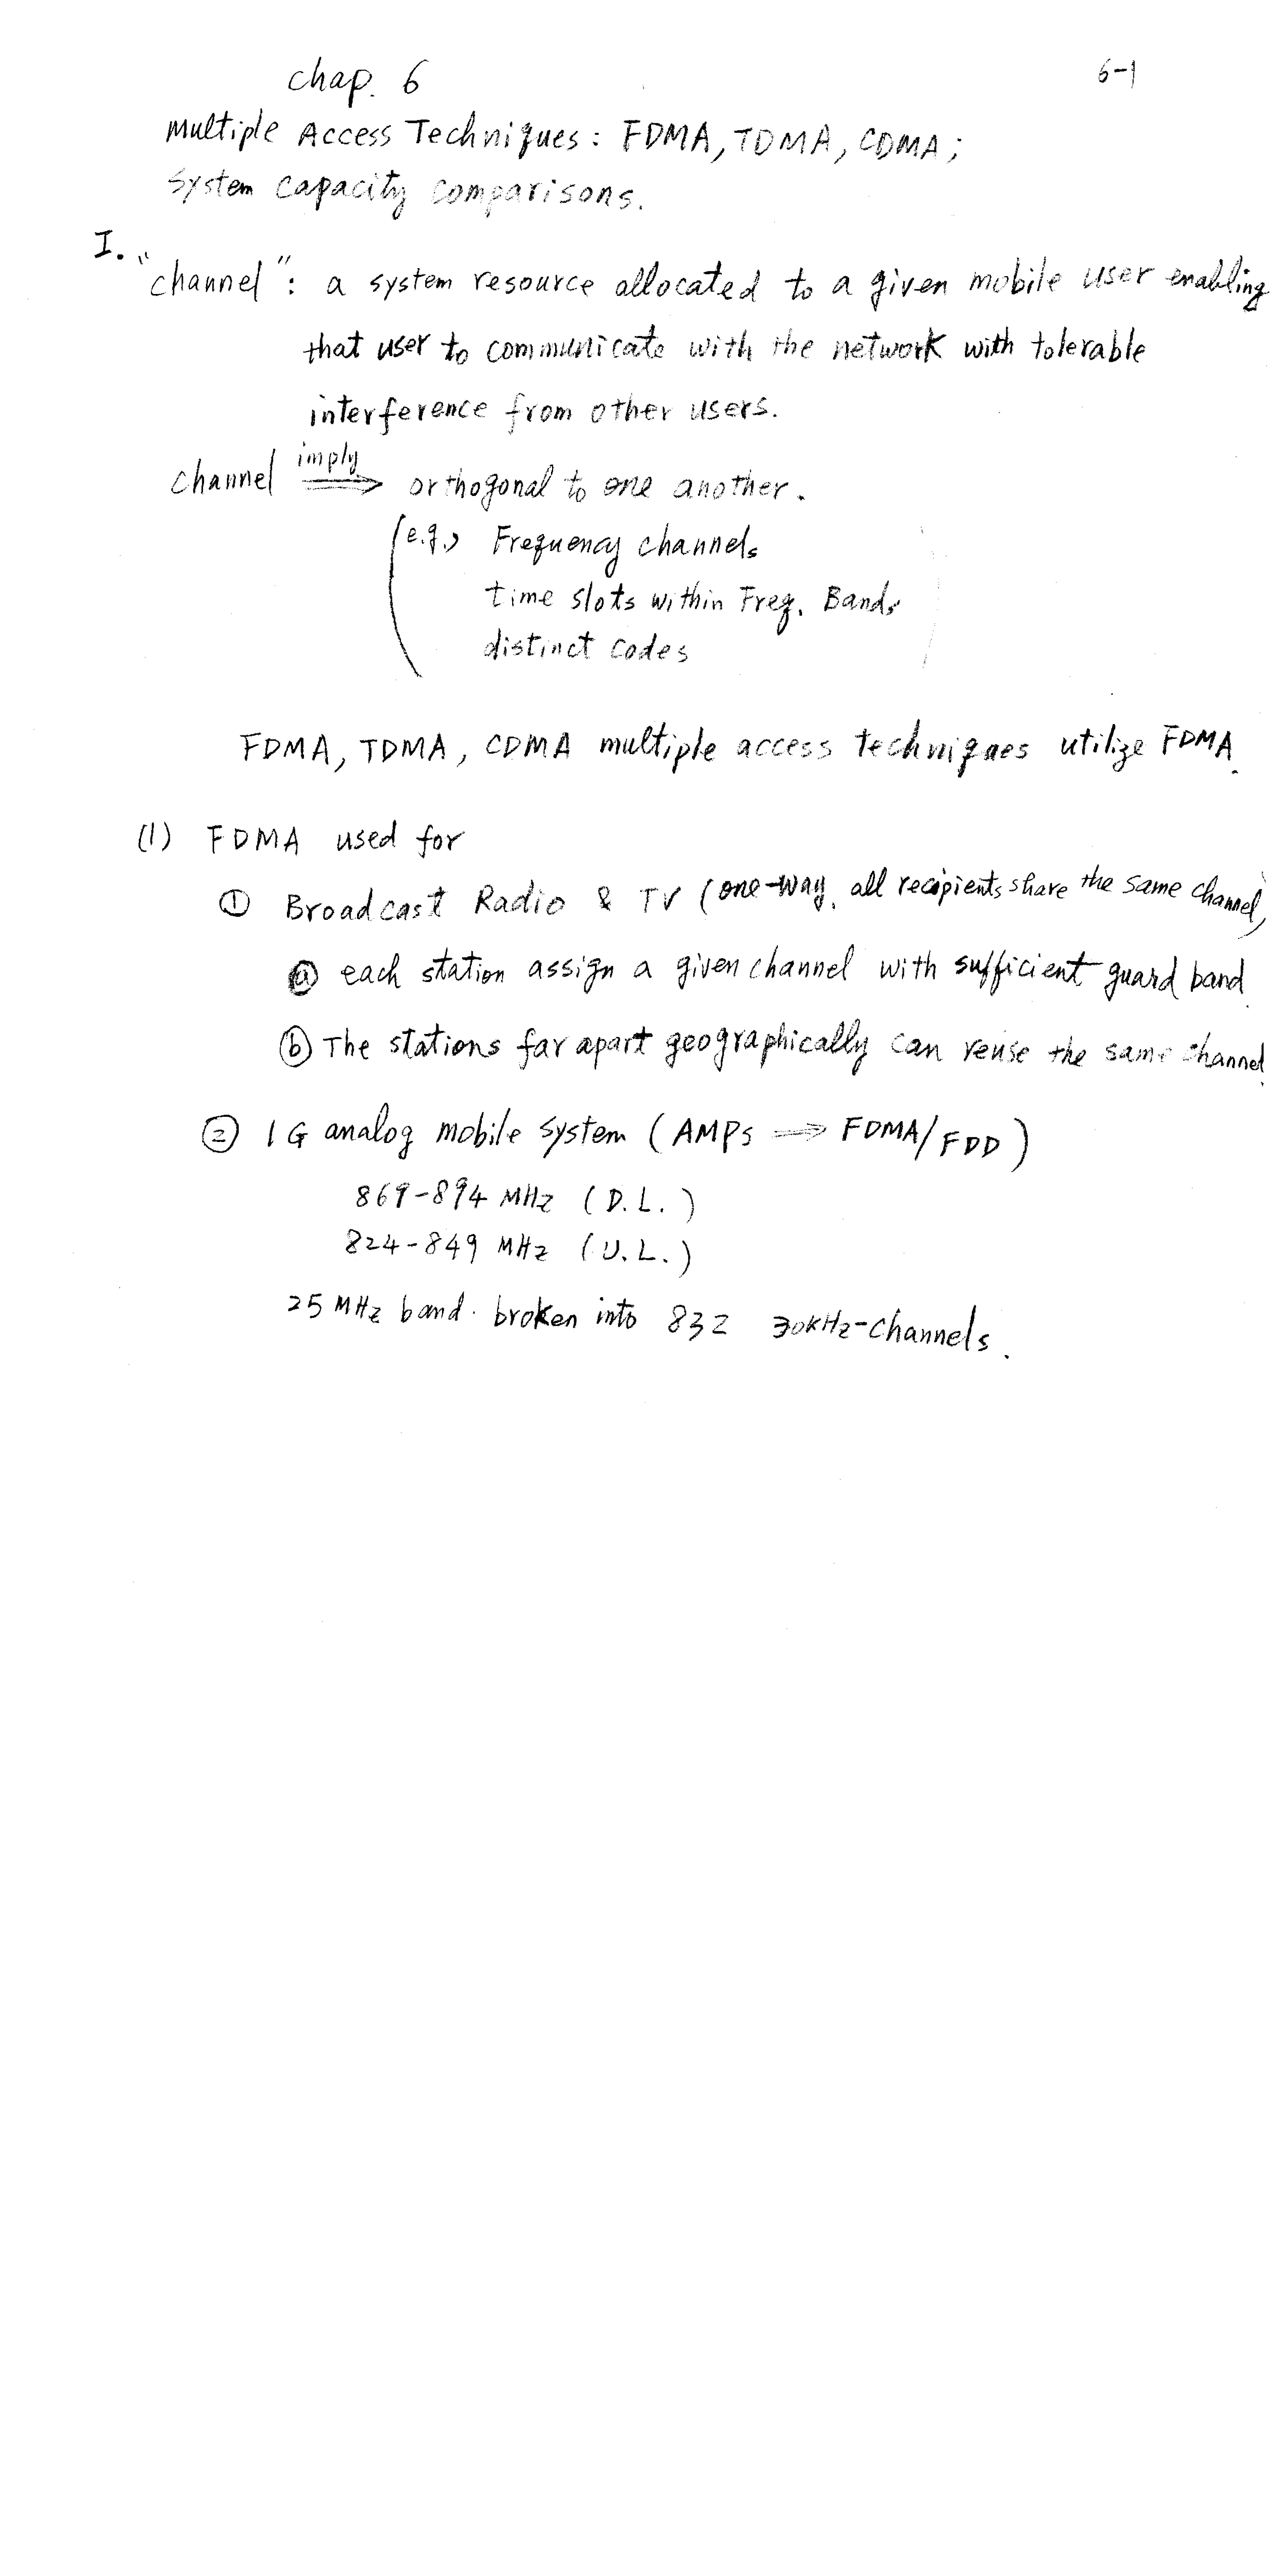 chap. 6
6-1
Multiple Access Techniques: FDMA, TDMA, CDMA;
System capacity comparisons.
I.
"channel": a system resource allocated to a given mobile user enabling
that user to communicate with the network with tolerable
interference from other users.
channel imply ⟹ orthogonal to one another.
(e.g., Frequency channels
time slots within Freq. Bands
distinct codes
FDMA, TDMA, CDMA multiple access techniques utilize FDMA.
(1) FDMA used for
① Broadcast Radio & TV (one-way, all recipients share the same channel)
ⓐ each station assign a given channel with sufficient guard band.
ⓑ The stations far apart geographically can reuse the same channel.
② 1G analog mobile system (AMPs ⟹ FDMA/FDD)
869-894 MHz (D.L.)
824-849 MHz (U.L.)
25 MHz band. broken into 832 30kHz-channels.